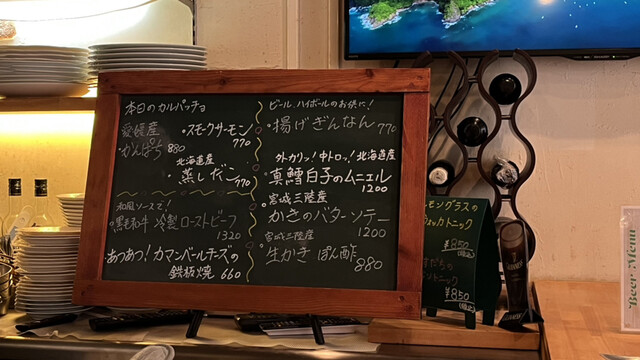 本日のカルパッチョ
愛媛産
・かんぱち 880
・スモークサーモン
770
北海道産
・蒸しだこ 770
和風ソースで!
・黒毛和牛 冷製ローストビーフ
1320
・あつあつ!カマンベールチーズの
鉄板焼 660
ビール、ハイボールのお供に!
・揚げぎんなん 770
外カリッ!中トロッ!北海道産
・真鱈白子のムニエル
1200
宮城三陸産
・かきのバターソテー
1200
宮城三陸産
・生かき ぽん酢 880
レモングラスの
ウォッカトニック
¥850
すだちの
¥850
Beer Menu